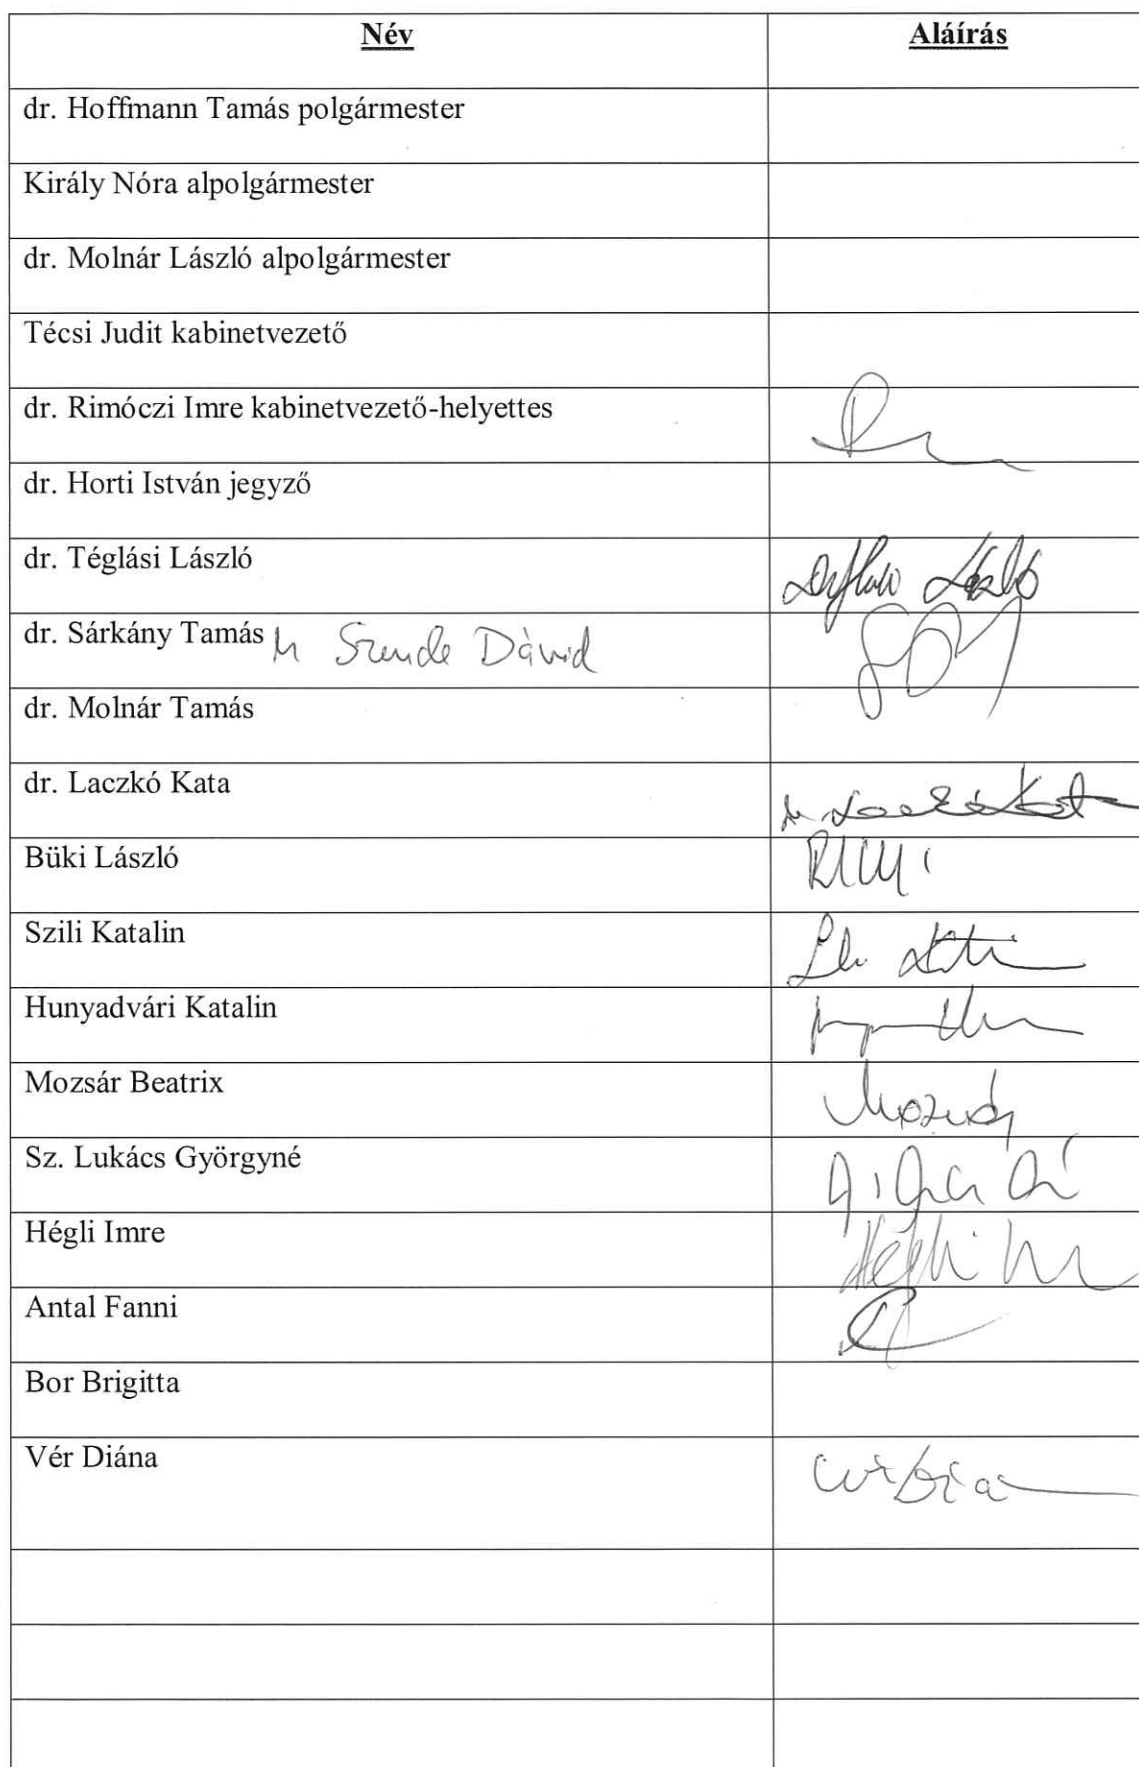 Név Aláírás
dr. Hoffmann Tamás polgármester
Király Nóra alpolgármester
dr. Molnár László alpolgármester
Técsi Judit kabinetvezető
dr. Rimóczi Imre kabinetvezető-helyettes
dr. Horti István jegyző
dr. Téglási László
dr. Sárkány Tamás Szende Dávid
dr. Molnár Tamás
dr. Laczkó Kata
Büki László
Szili Katalin
Hunyadvári Katalin
Mozsár Beatrix
Sz. Lukács Györgyné
Hégli Imre
Antal Fanni
Bor Brigitta
Vér Diána